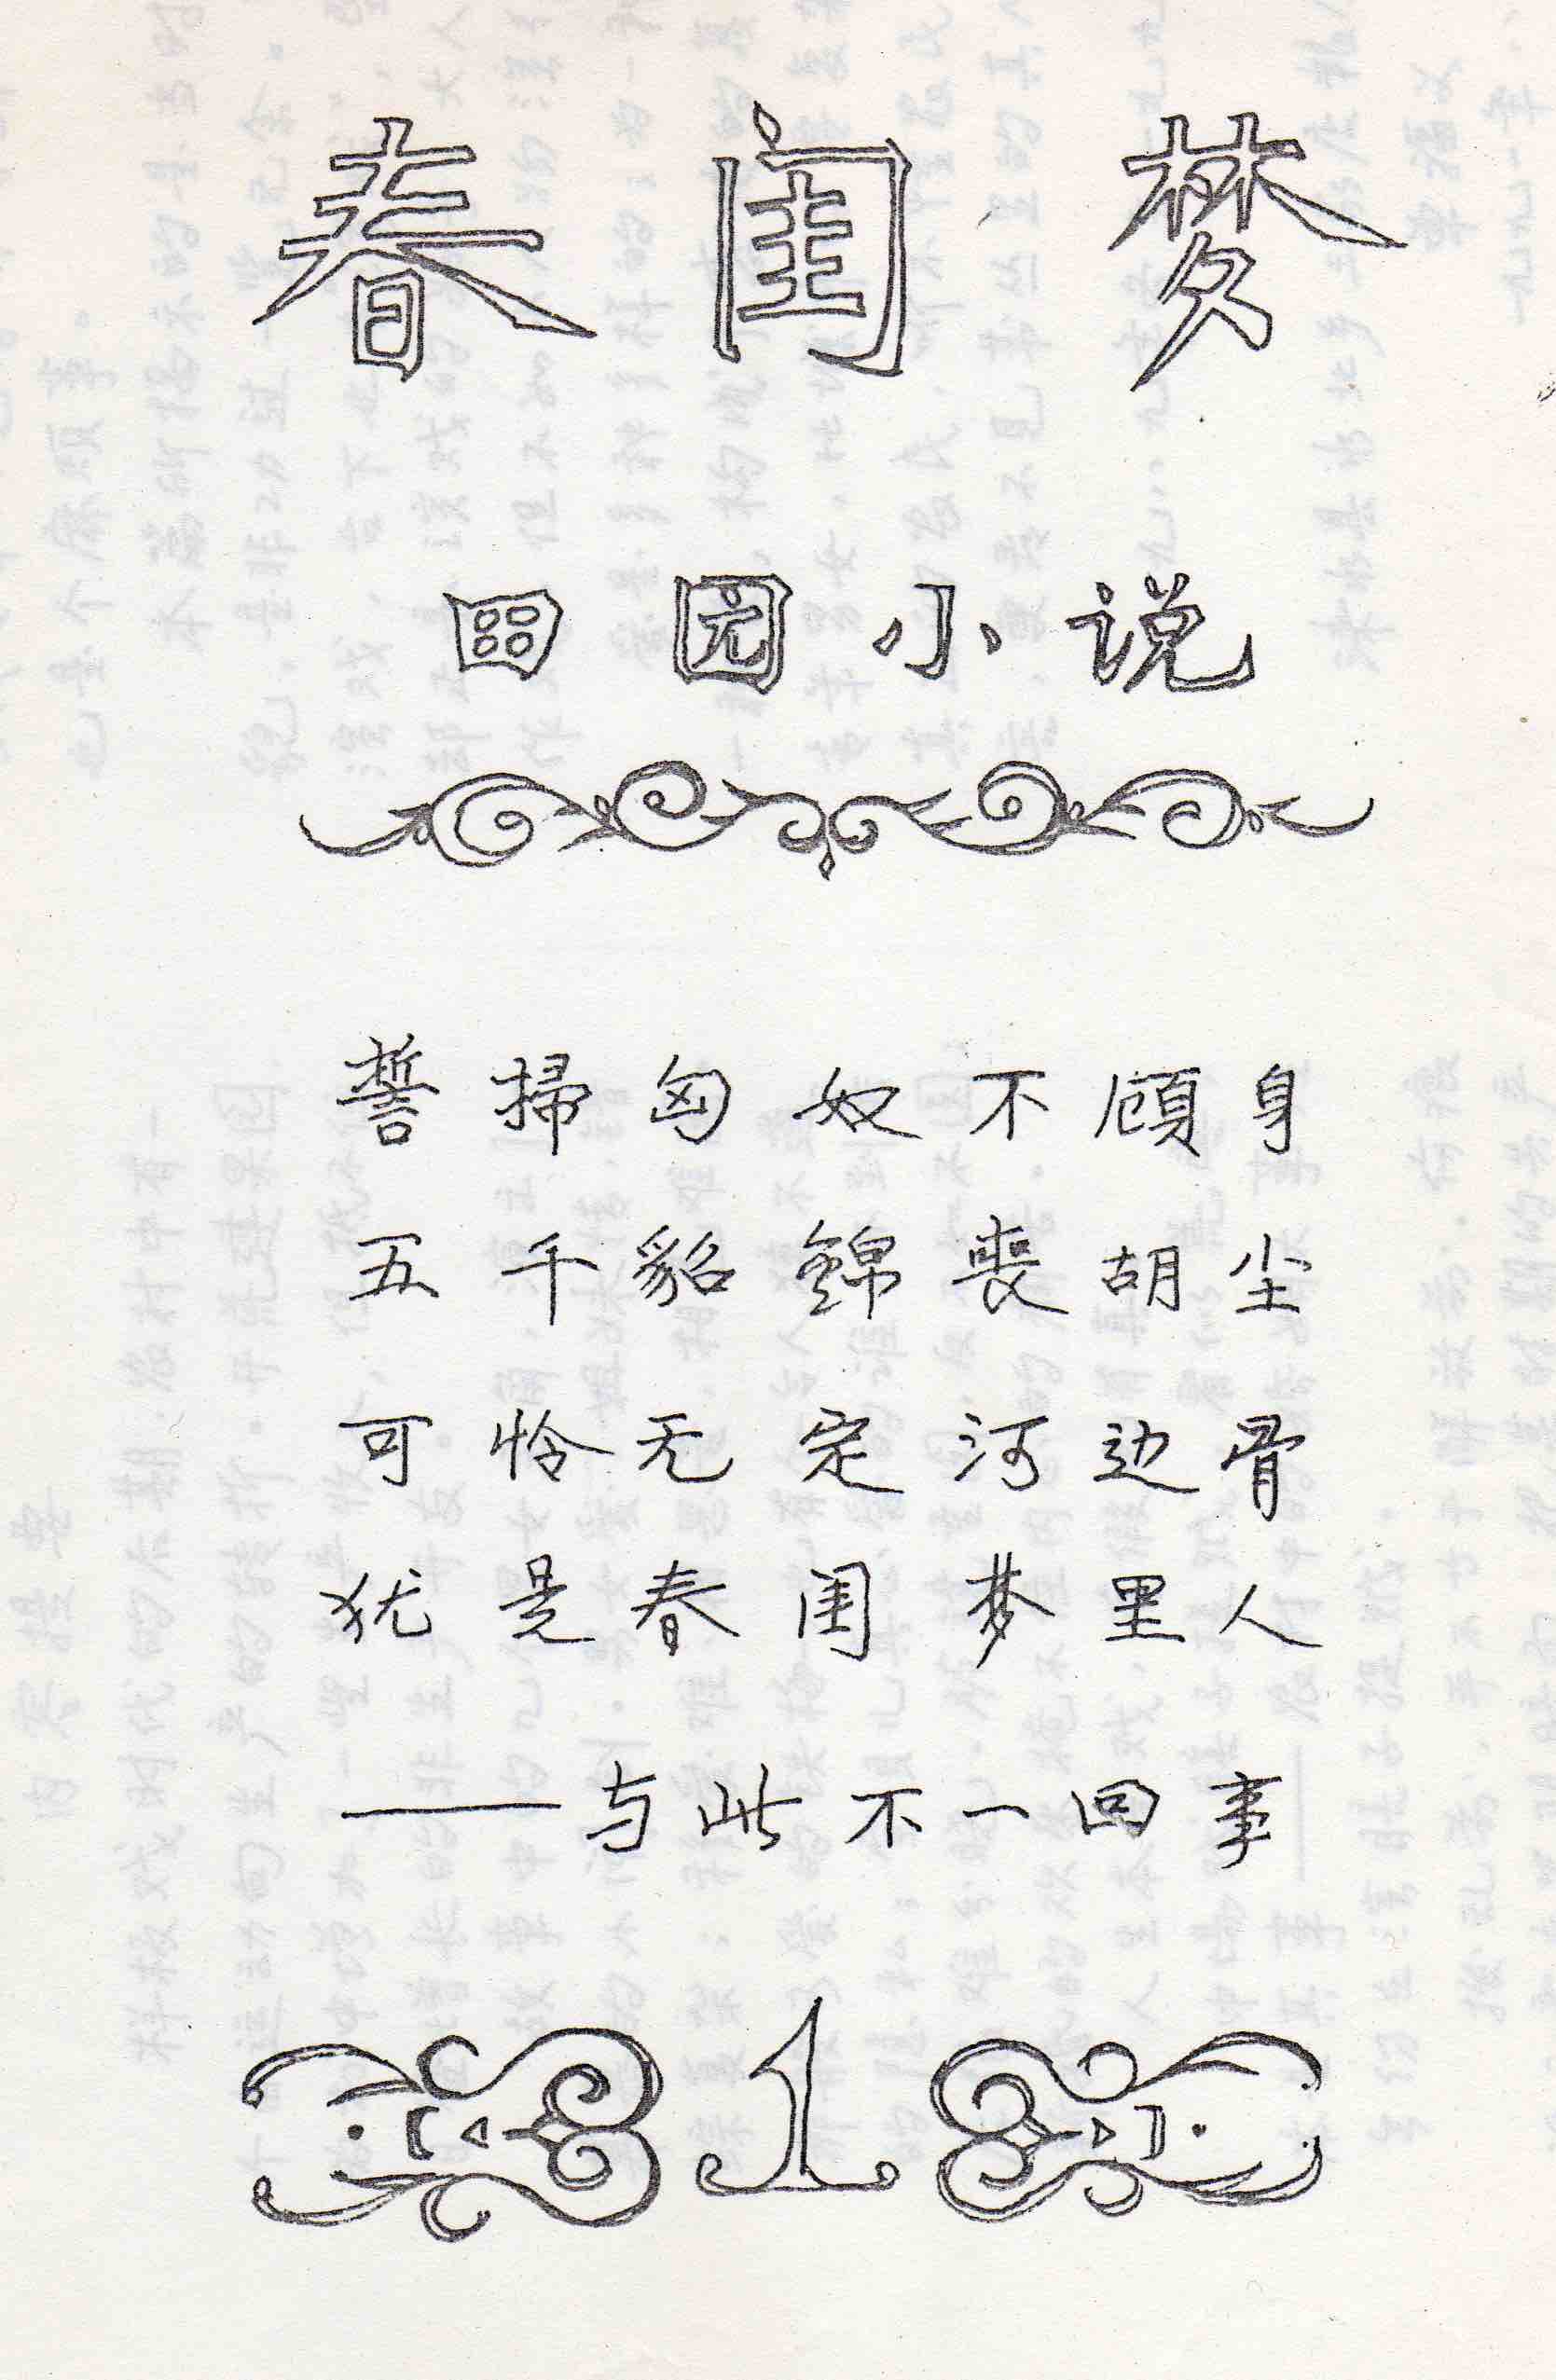 春闺梦
田园小说
誓掃匈奴不顧身
五千貂錦喪胡尘
可怜无定河边骨
犹是春闺梦里人
——与此不一回事
1